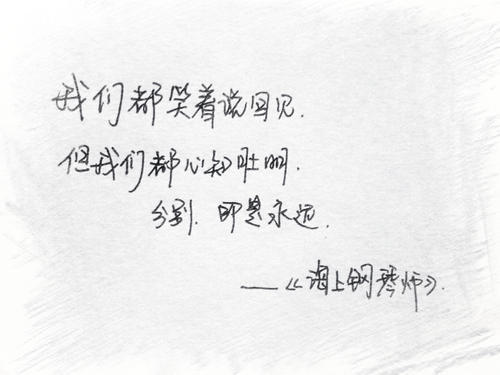 我们都笑着说回见.
但我们都心知肚明.
分别.即是永远.
——《海上钢琴师》.